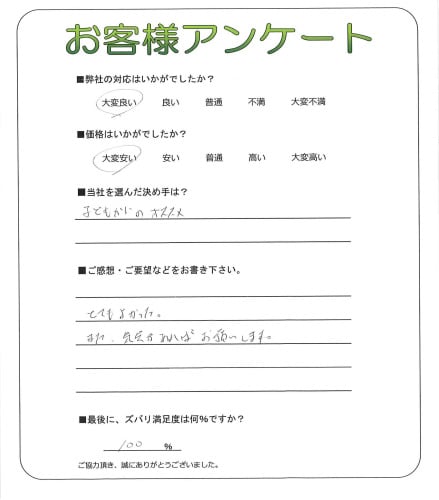 お客様アンケート
■弊社の対応はいかがでしたか？
大変良い 良い 普通 不満 大変不満
■価格はいかがでしたか？
大変安い 安い 普通 高い 大変高い
■当社を選んだ決め手は？
子どもからの オススメ
■ご感想・ご要望などをお書き下さい。
とてもよかった。
また、気会があれば お願いします。
■最後に、ズバリ満足度は何％ですか？
100 ％
ご協力頂き、誠にありがとうございました。